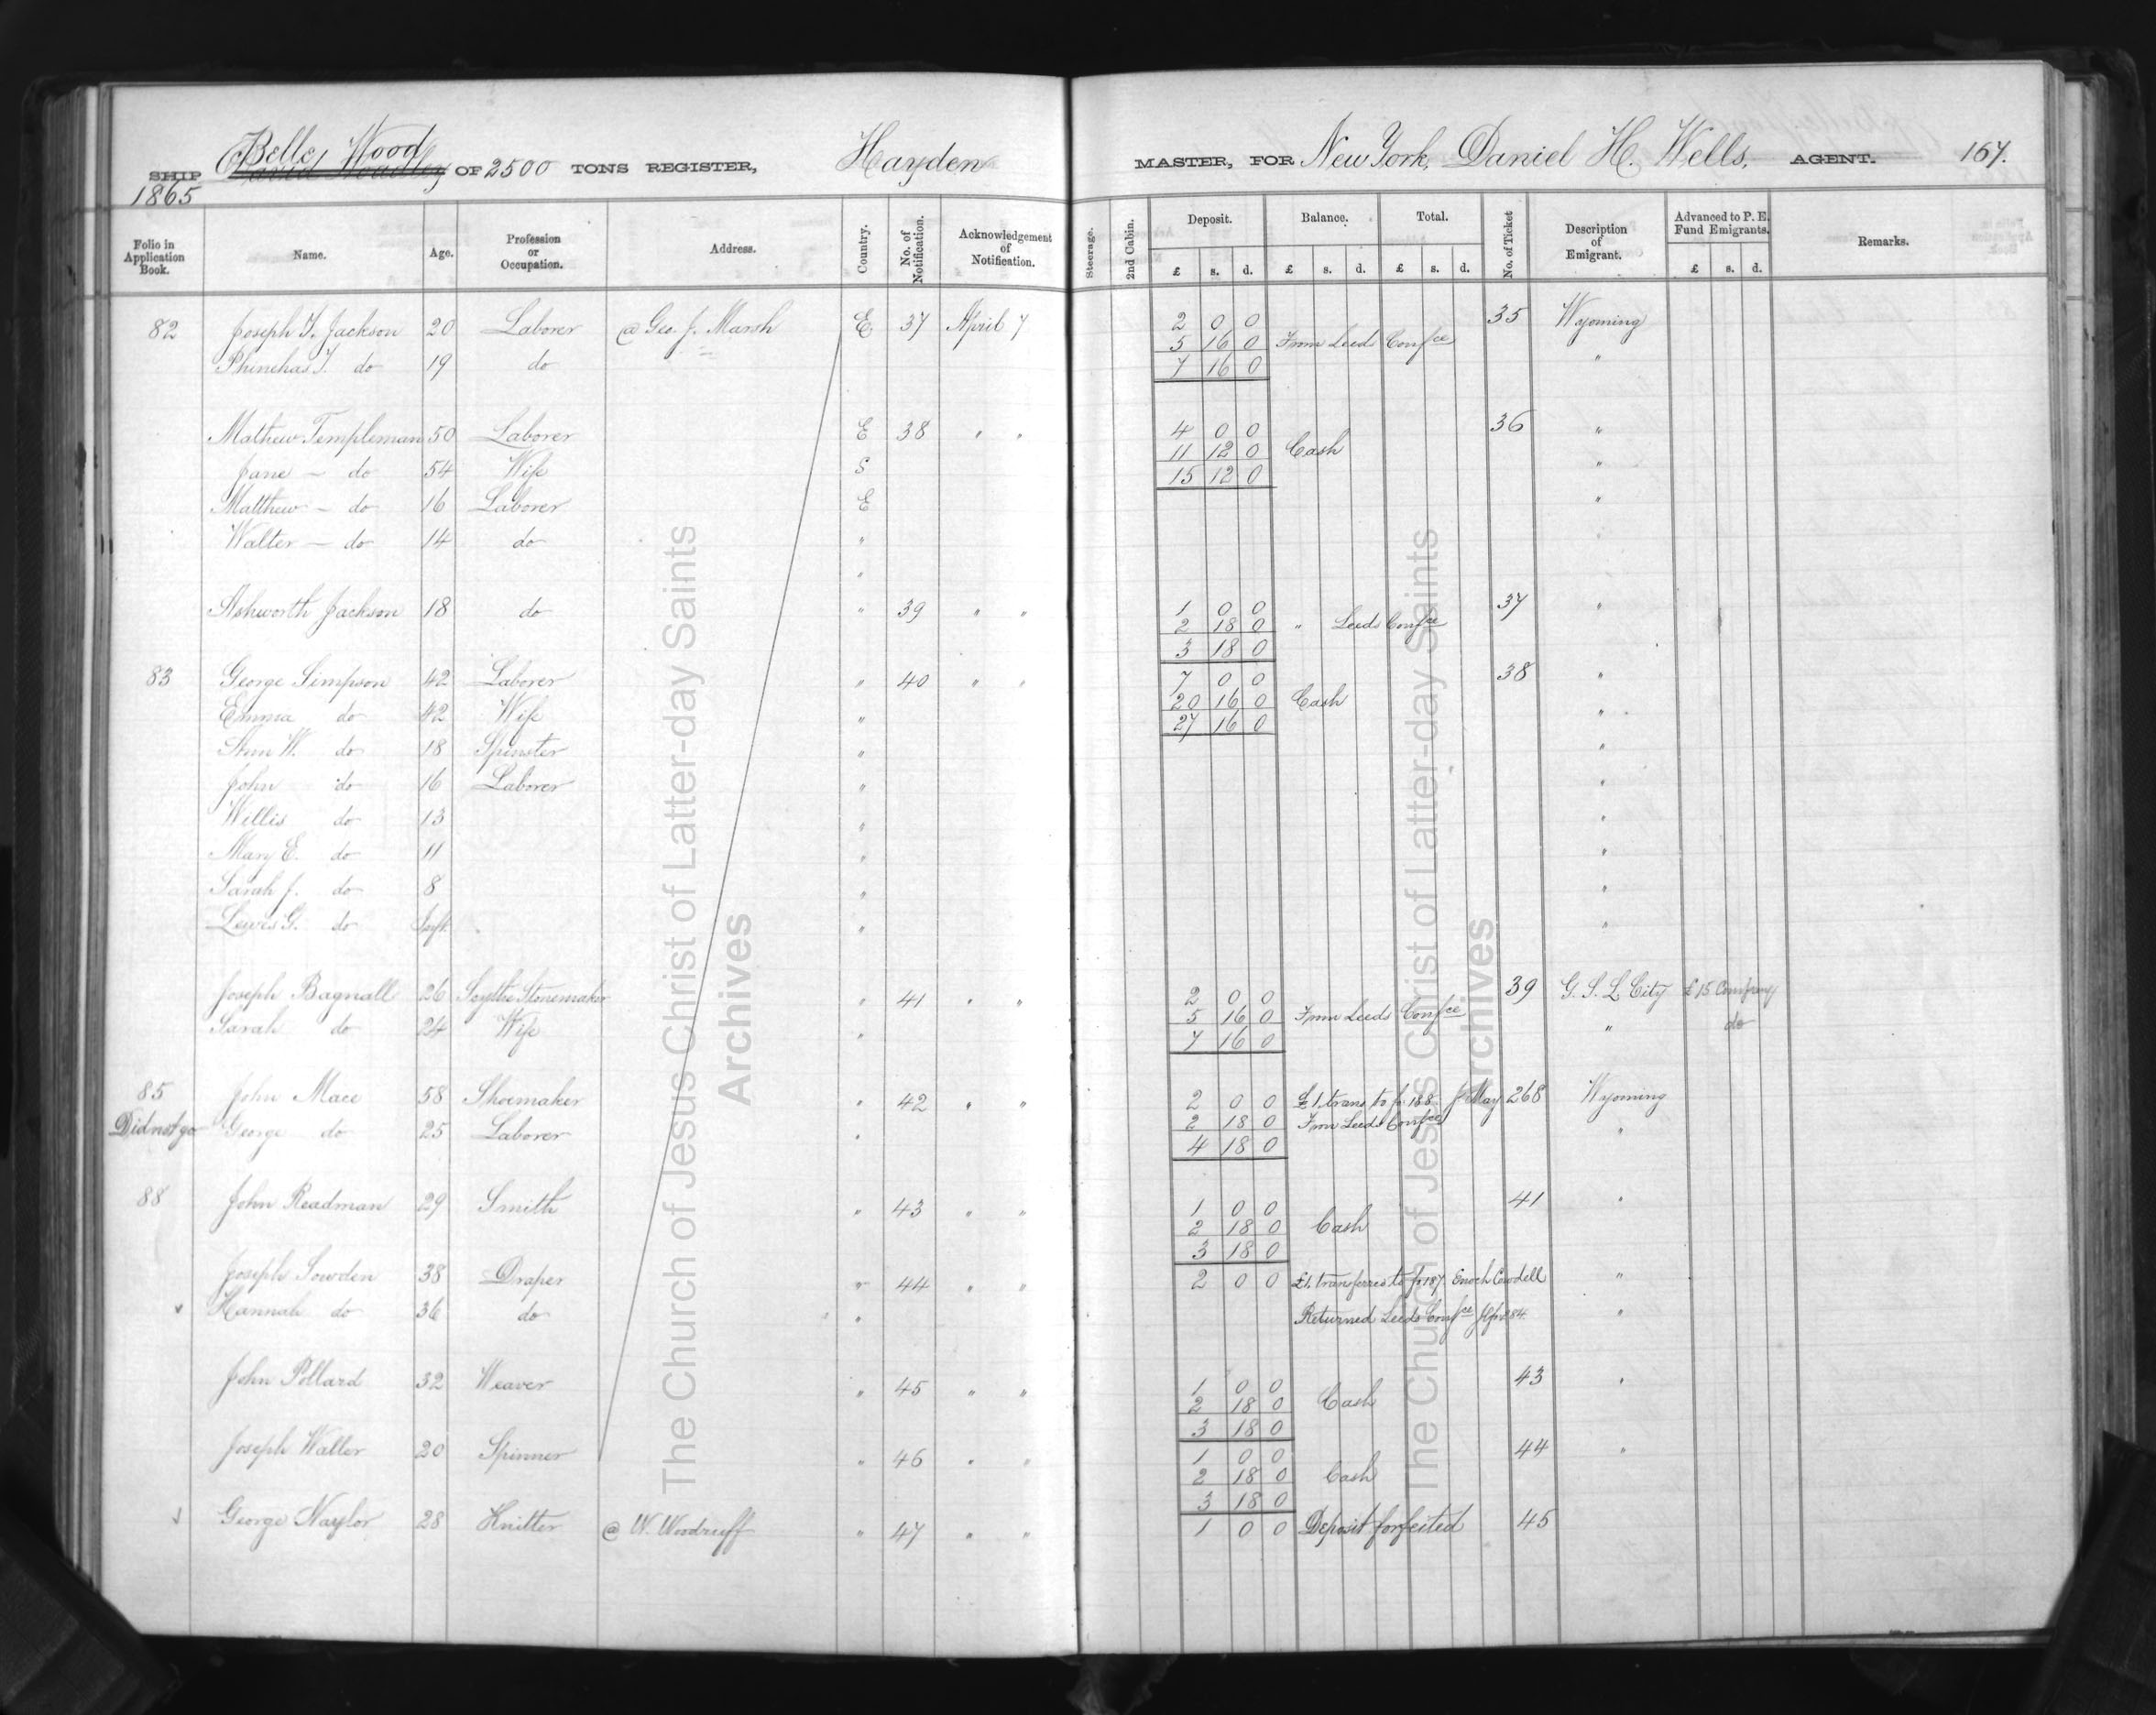 Belle Wood
SHIP David Hoadley OF 2500 TONS REGISTER, Hayden MASTER, FOR New York, Daniel H. Wells, AGENT. 167.
1865
Folio in Application Book. Name. Age. Profession or Occupation. Address. Country. No. of Notification. Acknowledgement of Notification. Steerage. 2nd Cabin. Deposit. £ s. d. Balance. £ s. d. Total. £ s. d. No. of Ticket Description of Emigrant. Advanced to P. E. Fund Emigrants. £ s. d. Remarks.
82 Joseph T. Jackson 20 Laborer @ Geo. J. Marsh E 37 April 7 2 0 0 35 Wyoming
5 16 0 From Leeds Confce
Phinehas T. do 19 do 7 16 0 "
Mathew Templeman 50 Laborer E 38 " " 4 0 0 36 "
11 12 0 Cash
Jane - do 54 Wife S 15 12 0 "
Matthew - do 16 Laborer E "
Walter - do 14 do "
"
Ashworth Jackson 18 do " 39 " " 1 0 0 37 "
2 18 0 " Leeds Confce
3 18 0
83 George Simpson 42 Laborer " 40 " " 7 0 0 38 "
20 16 0 Cash
Emma do 42 Wife " 27 16 0 "
Ann W. do 18 Spinster " "
John do 16 Laborer " "
Willis do 13 " "
Mary E. do 11 " "
Sarah J. do 8 " "
Lewis G. do Inft. " "
Joseph Bagnall 26 Scythe Stonemaker " 41 " " 2 0 0 39 G. S. L. City £15 Company
5 16 0 From Leeds Confce
Sarah do 24 Wife " 7 16 0 " do
85 John Mace 58 Shoemaker " 42 " " 2 0 0 £1. trans to fo 188 J May 268 Wyoming
2 18 0 From Leeds Confce
Did not go George do 25 Laborer " 4 18 0 "
88 John Readman 29 Smith " 43 " " 1 0 0 41 "
2 18 0 Cash
3 18 0
Joseph Sowden 38 Draper " 44 " " 2 0 0 £1. transferred to fo 187 Enoch Cowdell "
Hannah do 36 do " Returned Leeds Confce "
John Pollard 32 Weaver " 45 " " 1 0 0 43 "
2 18 0 Cash
3 18 0
Joseph Waller 20 Spinner " 46 " " 1 0 0 44 "
2 18 0 Cash
3 18 0
George Naylor 28 Knitter @ W. Woodruff " 47 " " 1 0 0 Deposit forfeited 45
The Church of Jesus Christ of Latter-day Saints
Archives
The Church of Jesus Christ of Latter-day Saints
Archives